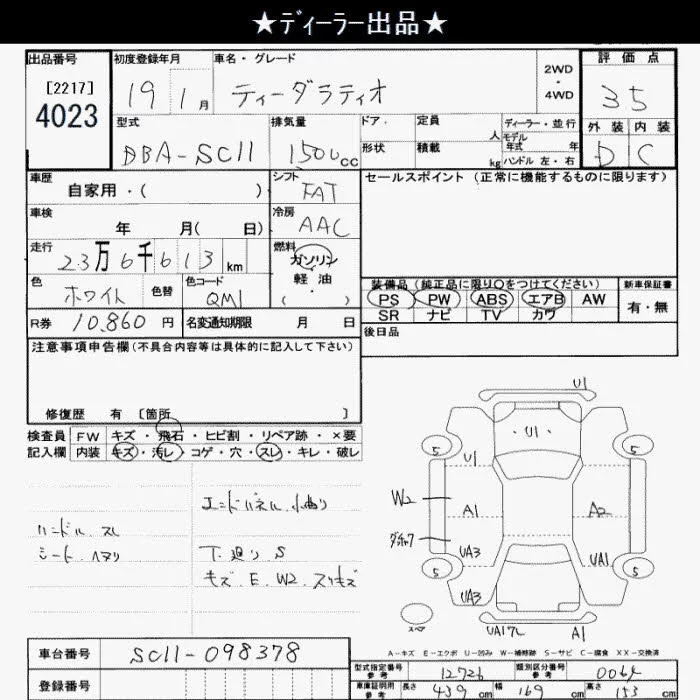 ★ディーラー出品★
出品番号 [2217] 4023
初度登録年月 19 1月
車名・グレード ティーダラティオ
2WD・4WD
評価点 35
外装 D 内装 C
型式 DBA-SC11
排気量 1500cc
ドア. 形状
定員 人 積載 kg
ディーラー・並行
モデル年式 年
ハンドル 左・右
車歴 自家用・( )
シフト FAT
セールスポイント (正常に機能するものに限ります)
車検 年 月( 日)
冷房 AAC
走行 23万6千613km
燃料 ガソリン・軽油・( )
色 ホワイト 色替
色コード QM1
装備品 (純正品に限り○をつけてください)
PS PW ABS エアB AW
SR ナビ TV カワ
新車保証書 有・無
R券 10,860円
名変通知期限 月 日
後日品
注意事項申告欄(不具合内容等は具体的に記入して下さい)
修復歴 有 [箇所 ]
検査員記入欄
FW キズ・飛石・ヒビ割・リペア跡・×要
内装 キズ・汚レ・コゲ・穴・スレ・キレ・破レ
エンドパネル 小曲り
ハンドル スレ
シート ヘタリ
下廻り S
キズ E W2 スリキズ
U1
・U1・
5 5
U1
W2 A1 A2
UA3 UA1
5 5
UA3
スペア
UA17L A1
A-キズ E-エクボ U-凹み W-補修跡 S-サビ C-腐食 XX-交換済
車台番号 SC11-098378
登録番号
型式指定番号 参考 12726
類別区分番号 参考 0064
車庫証明用 参考 長さ 439cm 幅 169cm 高さ 153cm